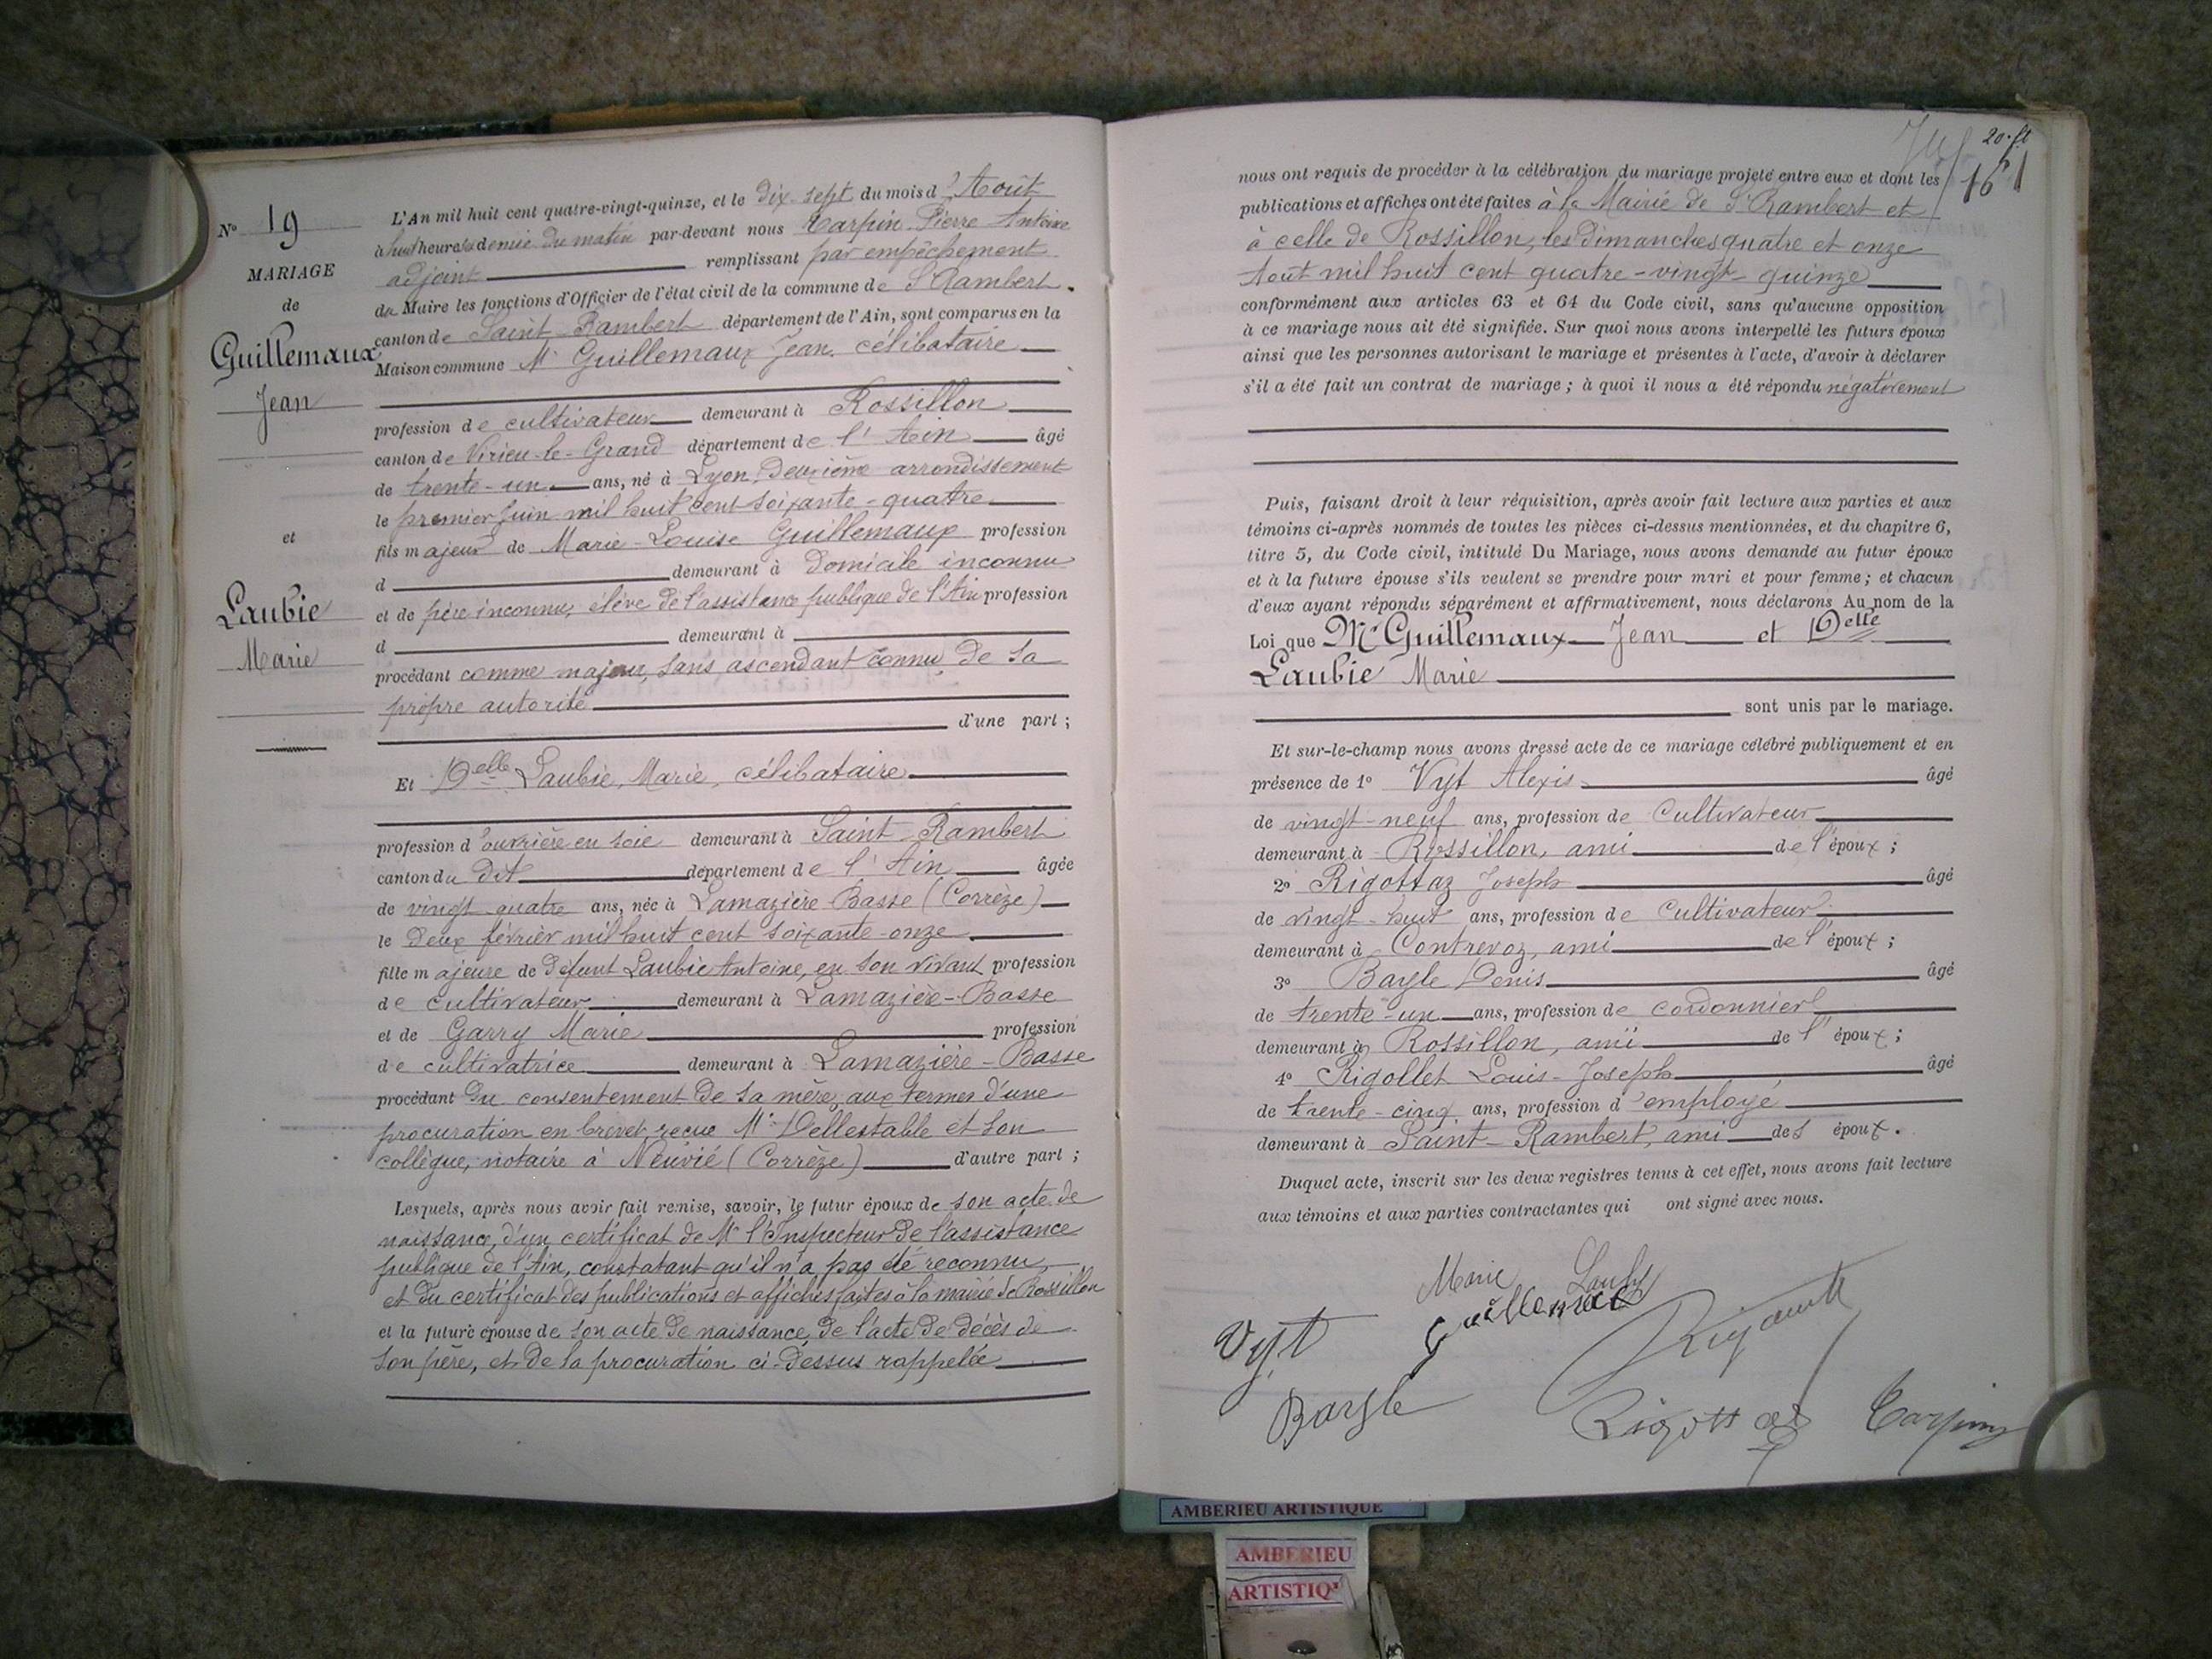 N° 19
MARIAGE
de
Guillemaux
Jean
et
Laubie
Marie
L'An mil huit cent quatre-vingt-quinze, et le dix-sept du mois d'Août
à huit heures et demie du matin par-devant nous Carpin Pierre Antoine
adjoint remplissant par empêchement
du Maire les fonctions d'Officier de l'état civil de la commune de St Rambert.
canton de Saint Rambert département de l'Ain, sont comparus en la
Maison commune Mr Guillemaux Jean, célibataire
profession de cultivateur demeurant à Rossillon
canton de Virieu-le-Grand département de l'Ain âgé
de trente-un ans, né à Lyon, deuxième arrondissement
le premier juin mil huit cent soixante-quatre
fils majeur de Marie-Louise Guillemaux profession
d demeurant à domicile inconnu
et de père inconnu, élève de l'assistance publique de l'Ain profession
d demeurant à
procédant comme majeur, sans ascendant connu, de sa
propre autorité
d'une part ;
Et Delle Laubie, Marie, célibataire
profession d'ouvrière en soie demeurant à Saint-Rambert
canton du dit département de l'Ain âgée
de vingt-quatre ans, née à Lamazière-Basse (Corrèze)
le deux février mil huit cent soixante-onze
fille majeure de défunt Laubie Antoine, en son vivant profession
de cultivateur demeurant à Lamazière-Basse
et de Garry Marie profession
de cultivatrice demeurant à Lamazière-Basse
procédant du consentement de sa mère, aux termes d'une
procuration en brevet reçue Me Dellestable et son
collègue, notaire à Neuvié (Corrèze) d'autre part ;
Lesquels, après nous avoir fait remise, savoir, le futur époux de son acte de
naissance, d'un certificat de Mr l'Inspecteur de l'assistance
publique de l'Ain, constatant qu'il n'a pas été reconnu,
et du certificat des publications et affiches faites à la mairie de Rossillon
et la future épouse de son acte de naissance, de l'acte de décès de
son père, et de la procuration ci-dessus rappelée
20. ft
161
nous ont requis de procéder à la célébration du mariage projeté entre eux et dont les
publications et affiches ont été faites à la Mairie de St Rambert et
à celle de Rossillon, les dimanches quatre et onze
Août mil huit cent quatre-vingt-quinze
conformément aux articles 63 et 64 du Code civil, sans qu'aucune opposition
à ce mariage nous ait été signifiée. Sur quoi nous avons interpellé les futurs époux
ainsi que les personnes autorisant le mariage et présentes à l'acte, d'avoir à déclarer
s'il a été fait un contrat de mariage ; à quoi il nous a été répondu négativement
Puis, faisant droit à leur réquisition, après avoir fait lecture aux parties et aux
témoins ci-après nommés de toutes les pièces ci-dessus mentionnées, et du chapitre 6,
titre 5, du Code civil, intitulé Du Mariage, nous avons demandé au futur époux
et à la future épouse s'ils veulent se prendre pour mari et pour femme ; et chacun
d'eux ayant répondu séparément et affirmativement, nous déclarons Au nom de la
Loi que Mr Guillemaux Jean et Delle
Laubie Marie
sont unis par le mariage.
Et sur-le-champ nous avons dressé acte de ce mariage célébré publiquement et en
présence de 1° Vyt Alexis âgé
de vingt-neuf ans, profession de Cultivateur
demeurant à Rossillon, ami de l'époux ;
2° Rigottaz Joseph âgé
de vingt-huit ans, profession de Cultivateur
demeurant à Contrevoz, ami de l'époux ;
3° Bayle Denis âgé
de trente-un ans, profession de cordonnier
demeurant à Rossillon, ami de l'époux ;
4° Rigollet Louis-Joseph âgé
de trente-cinq ans, profession d'employé
demeurant à Saint-Rambert, ami des époux.
Duquel acte, inscrit sur les deux registres tenus à cet effet, nous avons fait lecture
aux témoins et aux parties contractantes qui ont signé avec nous.
Marie Lauby
Vyt Guillemaux
Bayle Rigottaz Carpin
AMBERIEU ARTISTIQUE
AMBERIEU
ARTISTIQ